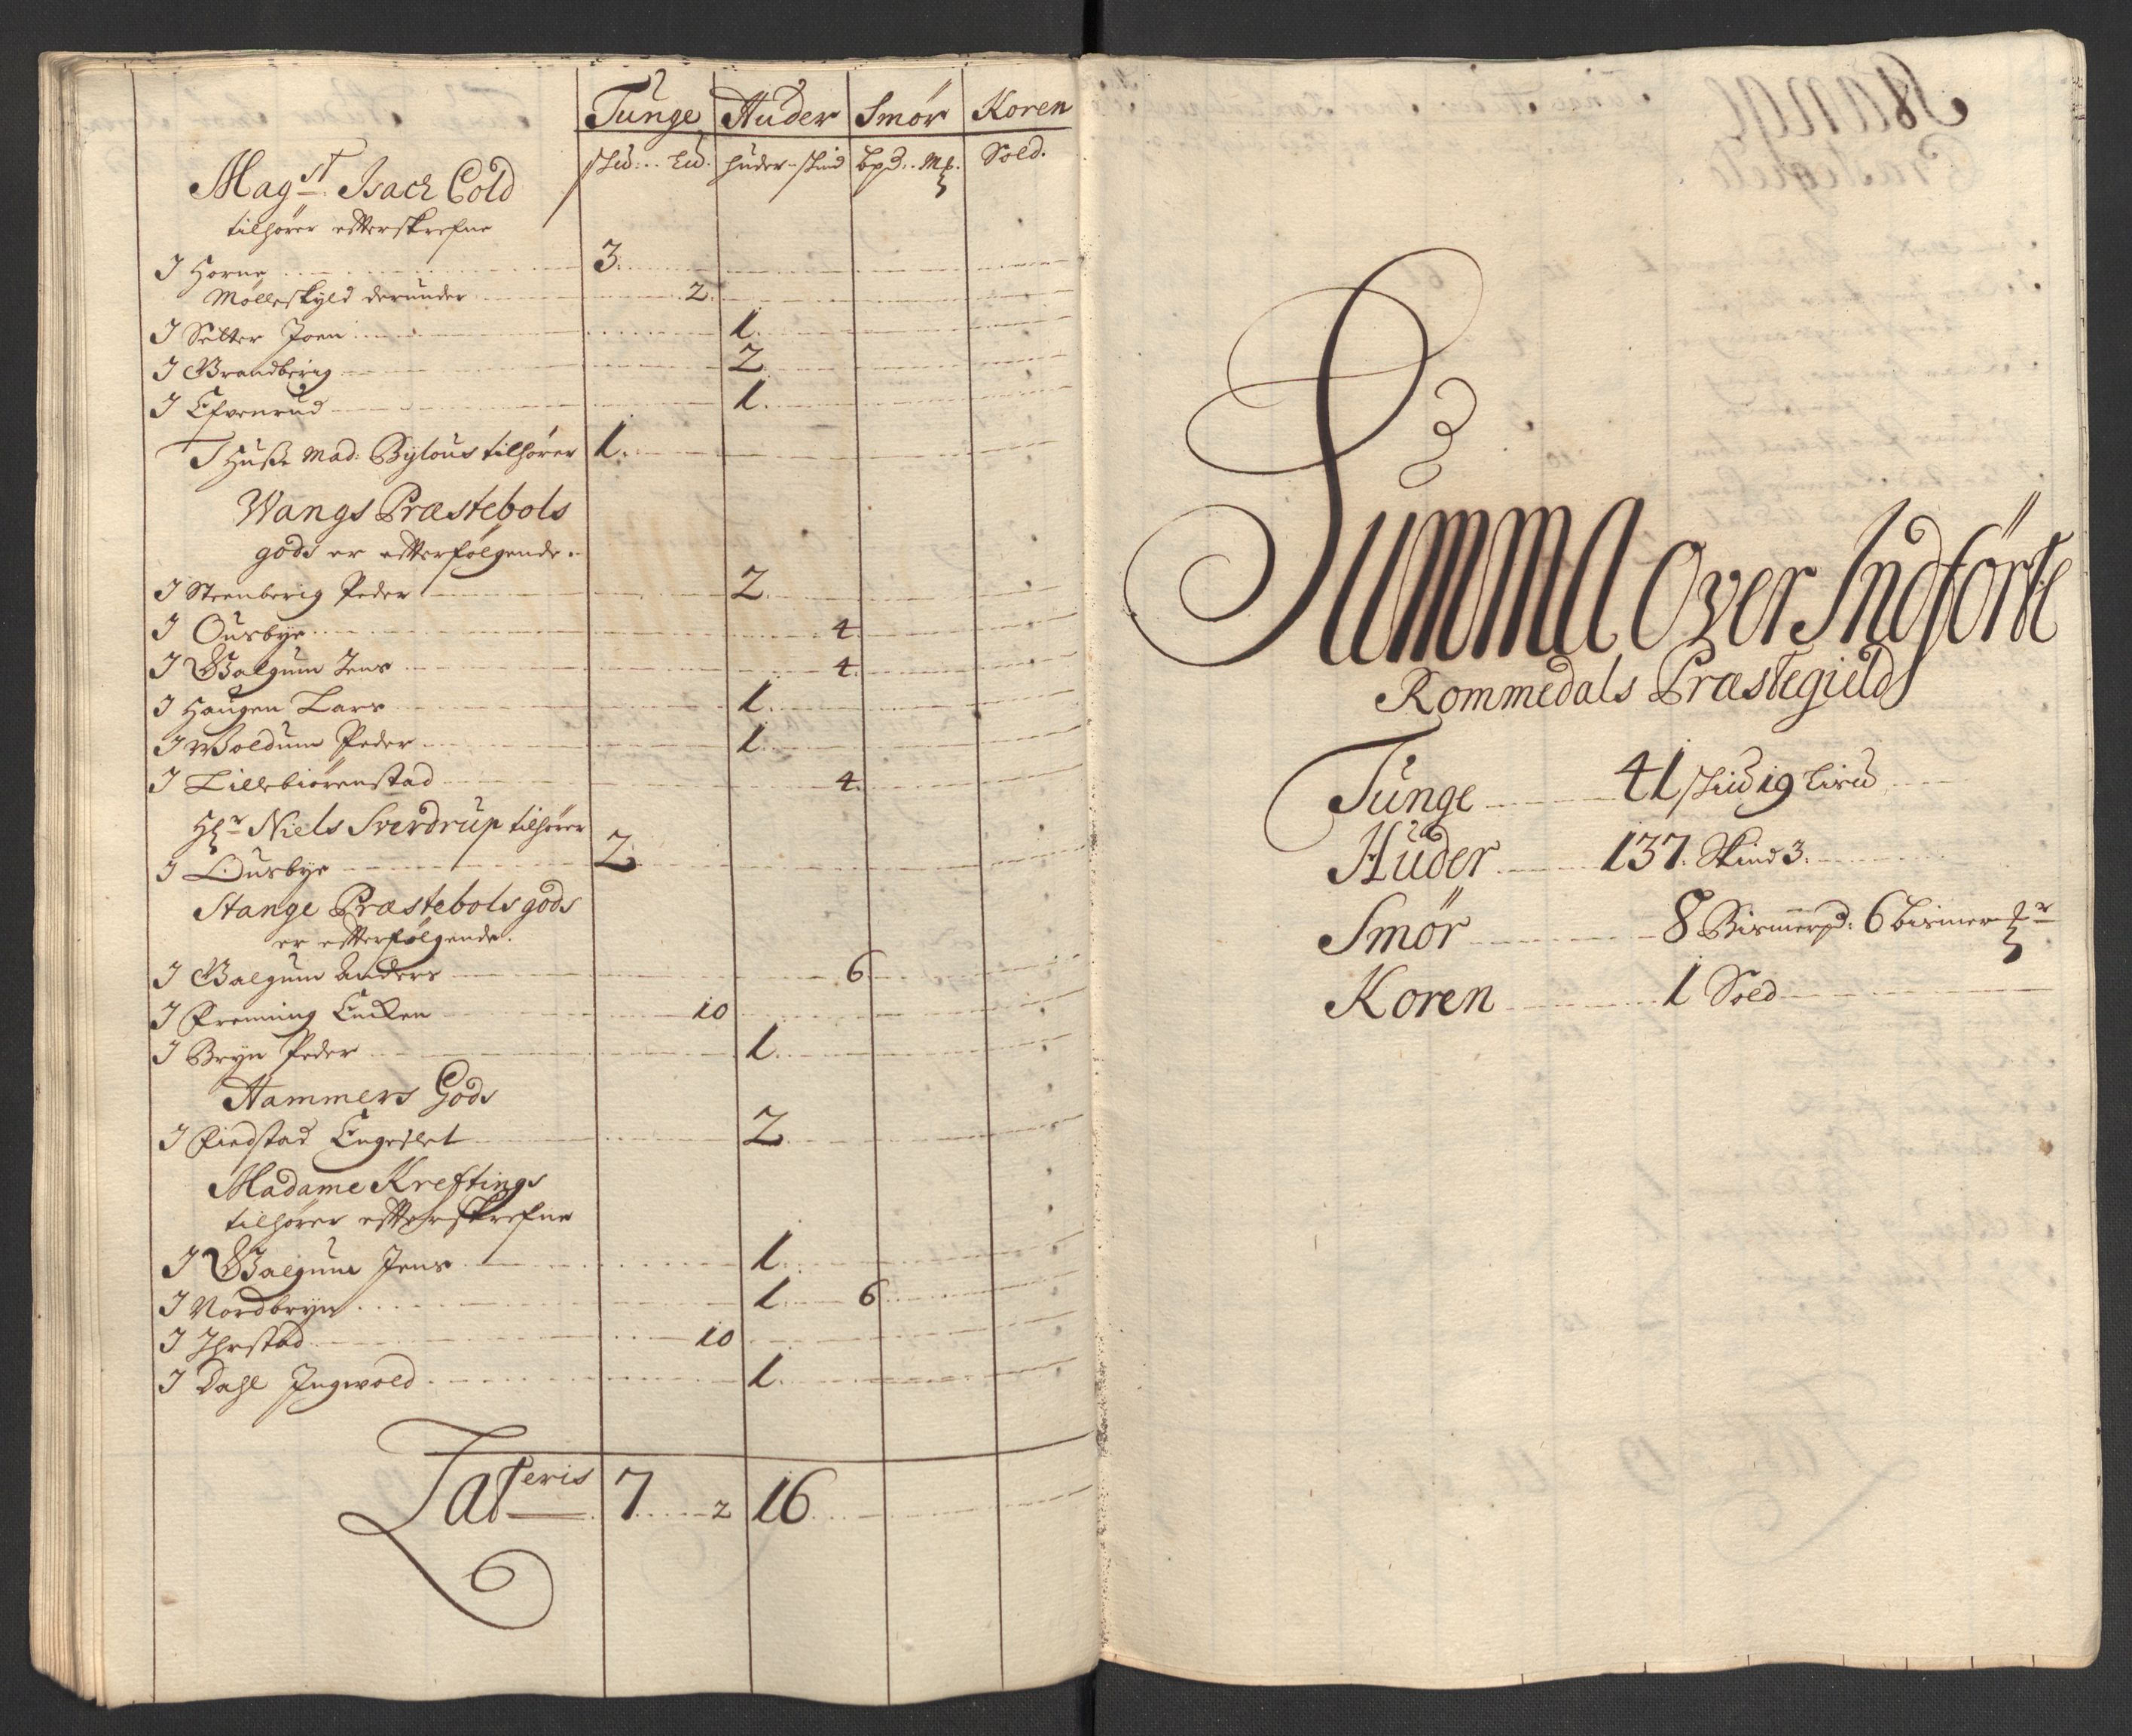 Tunge Huder Smør Koren
skud. Lid. huder. skind bpd. Mk. Sold.
Mag.st Isach Cold
tilhører efterskrefne
I Horne 3.
Mølleskyld derunder 2.
I Selter Joen 1.
I Brandberig 2
I Efvenrud 1.
I Huse Mad: Bylous tilhører 1.
Wangs Præstebols
gods er efterfølgende.
I Steenberig Peder 2.
I Ousbye 4.
I Balgum Jens 4.
I Haugen Lars 1.
I Woldum Peder 1.
I Lillebiørenstad 4.
Hr Niels Sverdrup tilhører
I Ousbye 2.
Stange Præstebols gods
er efterfølgende.
I Balgum Anders 6.
I Frenning 10
I Bryn Peder 1.
Hammers Gods
I Fiedstad Engeslet 2.
Madame Kreftings
tilhører efterskrefne
I Balgum Jens 1.
I Nordbryn 1. 6
I Ihrstad 10
I Dahl Ingwold 1.
Lateris 7 2 16
Summa Over Indførte
Rommedals Præstegield
Tunge 41 skud 19 Lisd
Huder 137. Skind 3.
Smør 8 Bismerpd: 6 bismer
Koren 1 Sold